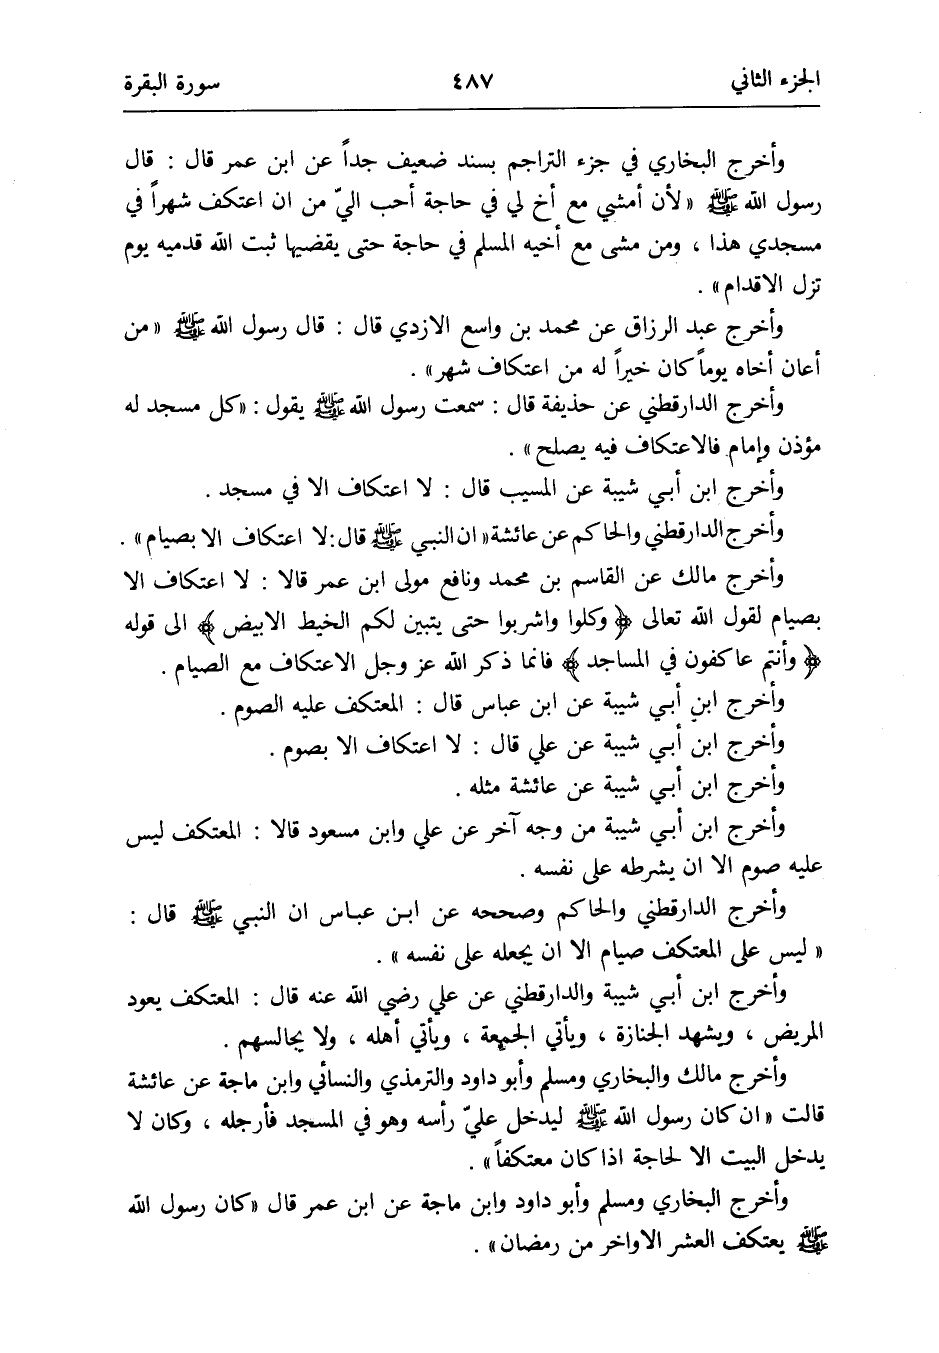 الجزء الثاني ٤٨٧ سورة البقرة
وأخرج البخاري في جزء التراجم بسند ضعيف جداً عن ابن عمر قال : قال
رسول الله ﷺ «لأن أمشي مع أخ لي في حاجة أحب اليّ من ان اعتكف شهراً في
مسجدي هذا ، ومن مشى مع أخيه المسلم في حاجة حتى يقضيها ثبت الله قدميه يوم
تزل الاقدام» .
وأخرج عبد الرزاق عن محمد بن واسع الازدي قال : قال رسول الله ﷺ «من
أعان أخاه يوماً كان خيراً له من اعتكاف شهر» .
وأخرج الدارقطني عن حذيفة قال : سمعت رسول الله ﷺ يقول : «كل مسجد له
مؤذن وإمام فالاعتكاف فيه يصلح» .
وأخرج ابن أبي شيبة عن المسيب قال : لا اعتكاف الا في مسجد .
وأخرج الدارقطني والحاكم عن عائشة «ان النبي ﷺ قال : لا اعتكاف الا بصيام» .
وأخرج مالك عن القاسم بن محمد ونافع مولى ابن عمر قالا : لا اعتكاف الا
بصيام لقول الله تعالى ﴿ وكلوا واشربوا حتى يتبين لكم الخيط الابيض ﴾ الى قوله
﴿ وأنتم عاكفون في المساجد ﴾ فانما ذكر الله عز وجل الاعتكاف مع الصيام .
وأخرج ابن أبي شيبة عن ابن عباس قال : المعتكف عليه الصوم .
وأخرج ابن أبي شيبة عن علي قال : لا اعتكاف الا بصوم .
وأخرج ابن أبي شيبة عن عائشة مثله .
وأخرج ابن أبي شيبة من وجه آخر عن علي وابن مسعود قالا : المعتكف ليس
عليه صوم الا ان يشرطه على نفسه .
وأخرج الدارقطني والحاكم وصححه عن ابن عباس ان النبي ﷺ قال :
« ليس على المعتكف صيام الا ان يجعله على نفسه » .
وأخرج ابن أبي شيبة والدارقطني عن علي رضي الله عنه قال : المعتكف يعود
المريض ، ويشهد الجنازة ، ويأتي الجمعة ، ويأتي أهله ، ولا يجالسهم .
وأخرج مالك والبخاري ومسلم وأبو داود والترمذي والنسائي وابن ماجة عن عائشة
قالت «ان كان رسول الله ﷺ ليدخل عليّ رأسه وهو في المسجد فأرجله ، وكان لا
يدخل البيت الا لحاجة اذا كان معتكفاً» .
وأخرج البخاري ومسلم وأبو داود وابن ماجة عن ابن عمر قال «كان رسول الله
ﷺ يعتكف العشر الاواخر من رمضان» .